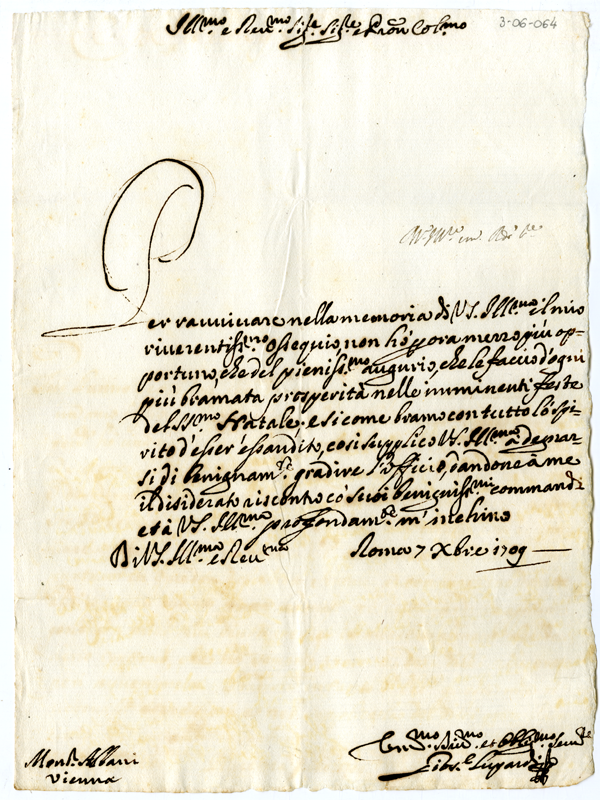 3-06-064
Ill.mo e Reu.mo Sig.re Sig.re e Pron Col.mo
Per rauuiuare nella memoria di VS. Ill.ma il mio
riuerentiss.mo ossequio, non hò p ora mezzo più op-
portuno, che del pieniss.mo augurio, che le faccio d'ogni
più bramata prosperità nelle imminenti feste
del SS.mo Natale; e si come bramo con tutto lo spi-
rito d'esser esaudito, così supplico VS. Ill.ma à degnar-
si di benignam.te gradire l'officio, dandone à me
il disiderato riscontro có suoi benigniss.mi commandi
et à VS. Ill.ma profondam.te m'inchino
Di VS. Ill.ma e Reu.ma Roma 7 Xbre 1709
Mons. Albani
Vienna
Um.mo Diu.mo et Obblig.mo Seru.re